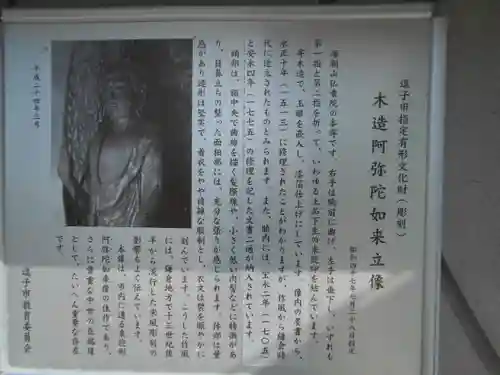 逗子市指定有形文化財(彫刻)
木造阿弥陀如来立像
昭和四十七年七月二十八日指定
海前山仏乗院の本尊です。右手は胸前に曲げ、左手は垂下し、いずれも
第一指と第二指を折って、いわゆる上品下生の来迎印を結んでいます。
寄木造で、玉眼を嵌入し、漆箔仕上げにしています。像内の墨書から、
永正十年(一五一三)に修理されたことがわかりますが、作風から鎌倉時
代に造立されたものとみられます。また、胎内には、宝永二年(一七〇五)
と安永四年(一七七五)の修理を記した文書二通が納入されています。
頭部は、額中央で曲線を描く髪際線や、小さく低い肉髻などに特徴があ
り、目鼻立ちの整った面相部には、充分な張りが感じられます。体部は量
感があり造形は堅実で、着衣をやや複雑な服制とし、衣文は襞を賑やかに
刻んでいます。こうした作風
には、鎌倉地方で十三世紀後
半から流行した宋風彫刻の
影響もよく伝えています。
本像は、市内に遺る来迎形
阿弥陀如来像の佳作であり、
さらに貴重な中世の在銘像
として、たいへん重要な存在
です。
平成二十四年三月
逗子市教育委員会